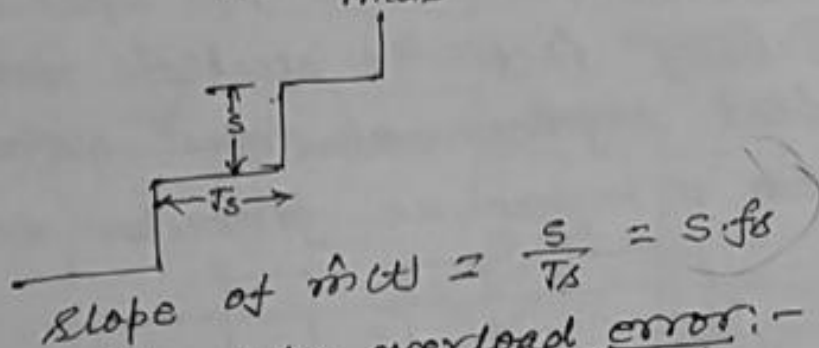 S
Ts
slope of m̂(t) = S/Ts = S.fs
overload error:-